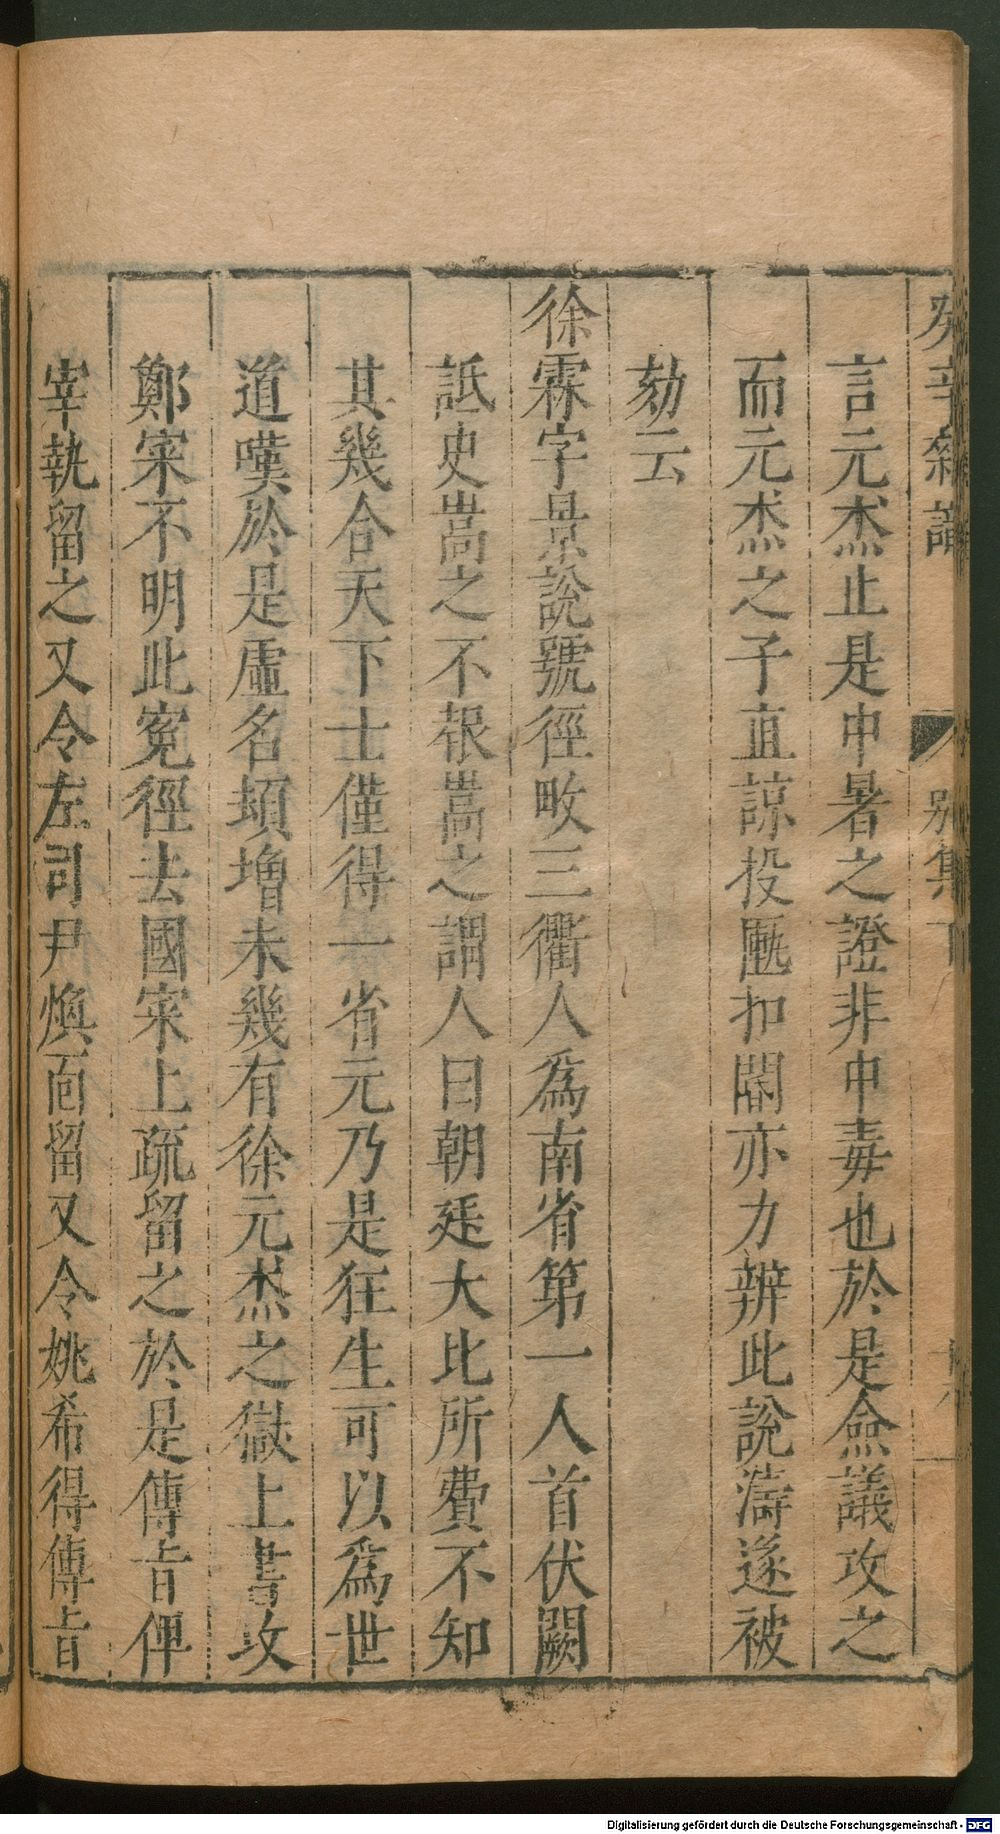 癸辛雜識
別集下
言元杰止是中暑之證非中毒也於是僉議攻之
而元杰之子直諒投匭扣閽亦力辨此說濤遂被
劾云
徐霖字景說號徑畈三衢人爲南省第一人首伏闕
詆史嵩之不報嵩之謂人曰朝廷大比所費不知
其幾合天下士僅得一省元乃是狂生可以爲世
道嘆於是虛名頓增未幾有徐元杰之獄上書攻
鄭寀不明此寃徑去國寀上疏留之於是傳旨俾
宰執留之又令左司尹煥面留又令姚希得傳旨
Digitalisierung gefördert durch die Deutsche Forschungsgemeinschaft - DFG